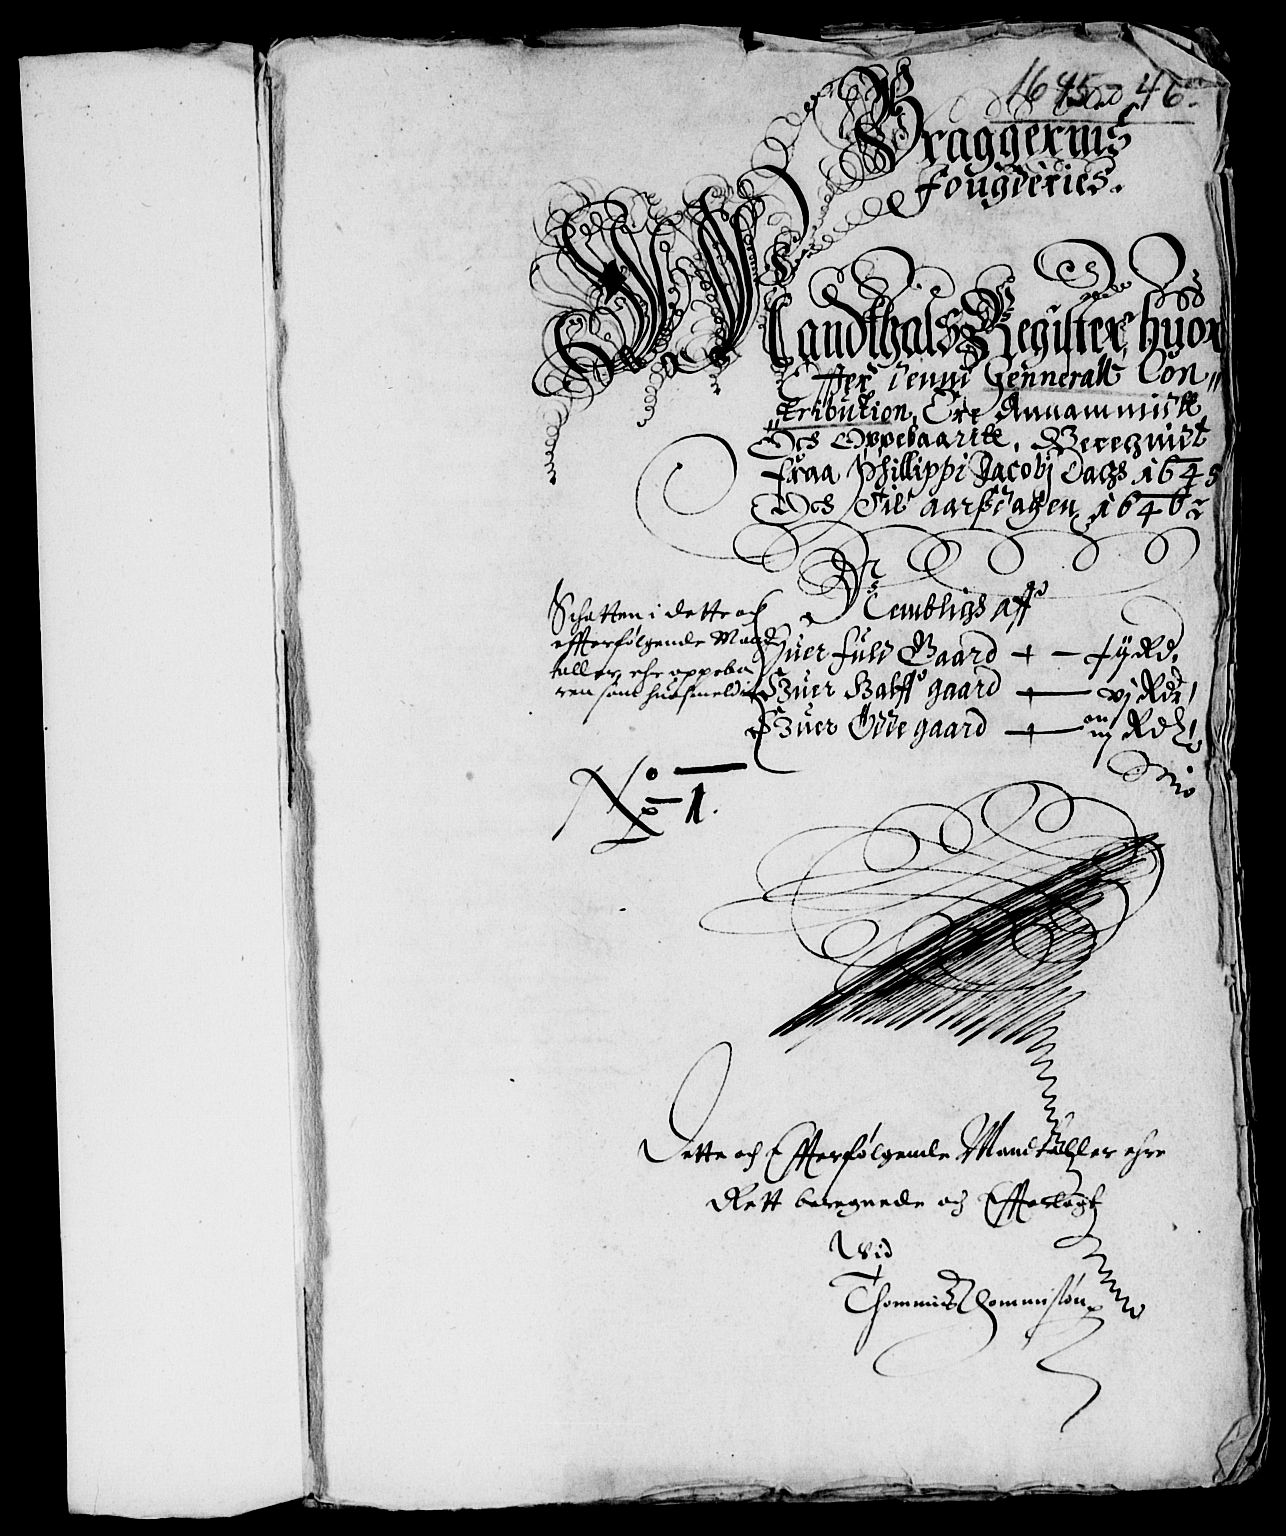 1645-46.
Braggernis
fougderies.
Mandthals Register huor
Effter denne Gennerall Con„
„tribution, Ere Annammitt
Och Oppebaaritt, Beregnidt
fraa Phillippi Jacobj Dags 1645
Och Til aarßdagen 1646
Nembligh aff
Huer fuld Gaard
Huer Halff gaard vj Rdr
Huer Øde gaard iij Rdr
Schatten i dette och
effterfølgende Mand
taller, ehr oppeba
ren som huosmeldis
No 1.
Dette och Effterfølgende Mandtaller ehre
Rett beregnede och Efferlagt
Vid